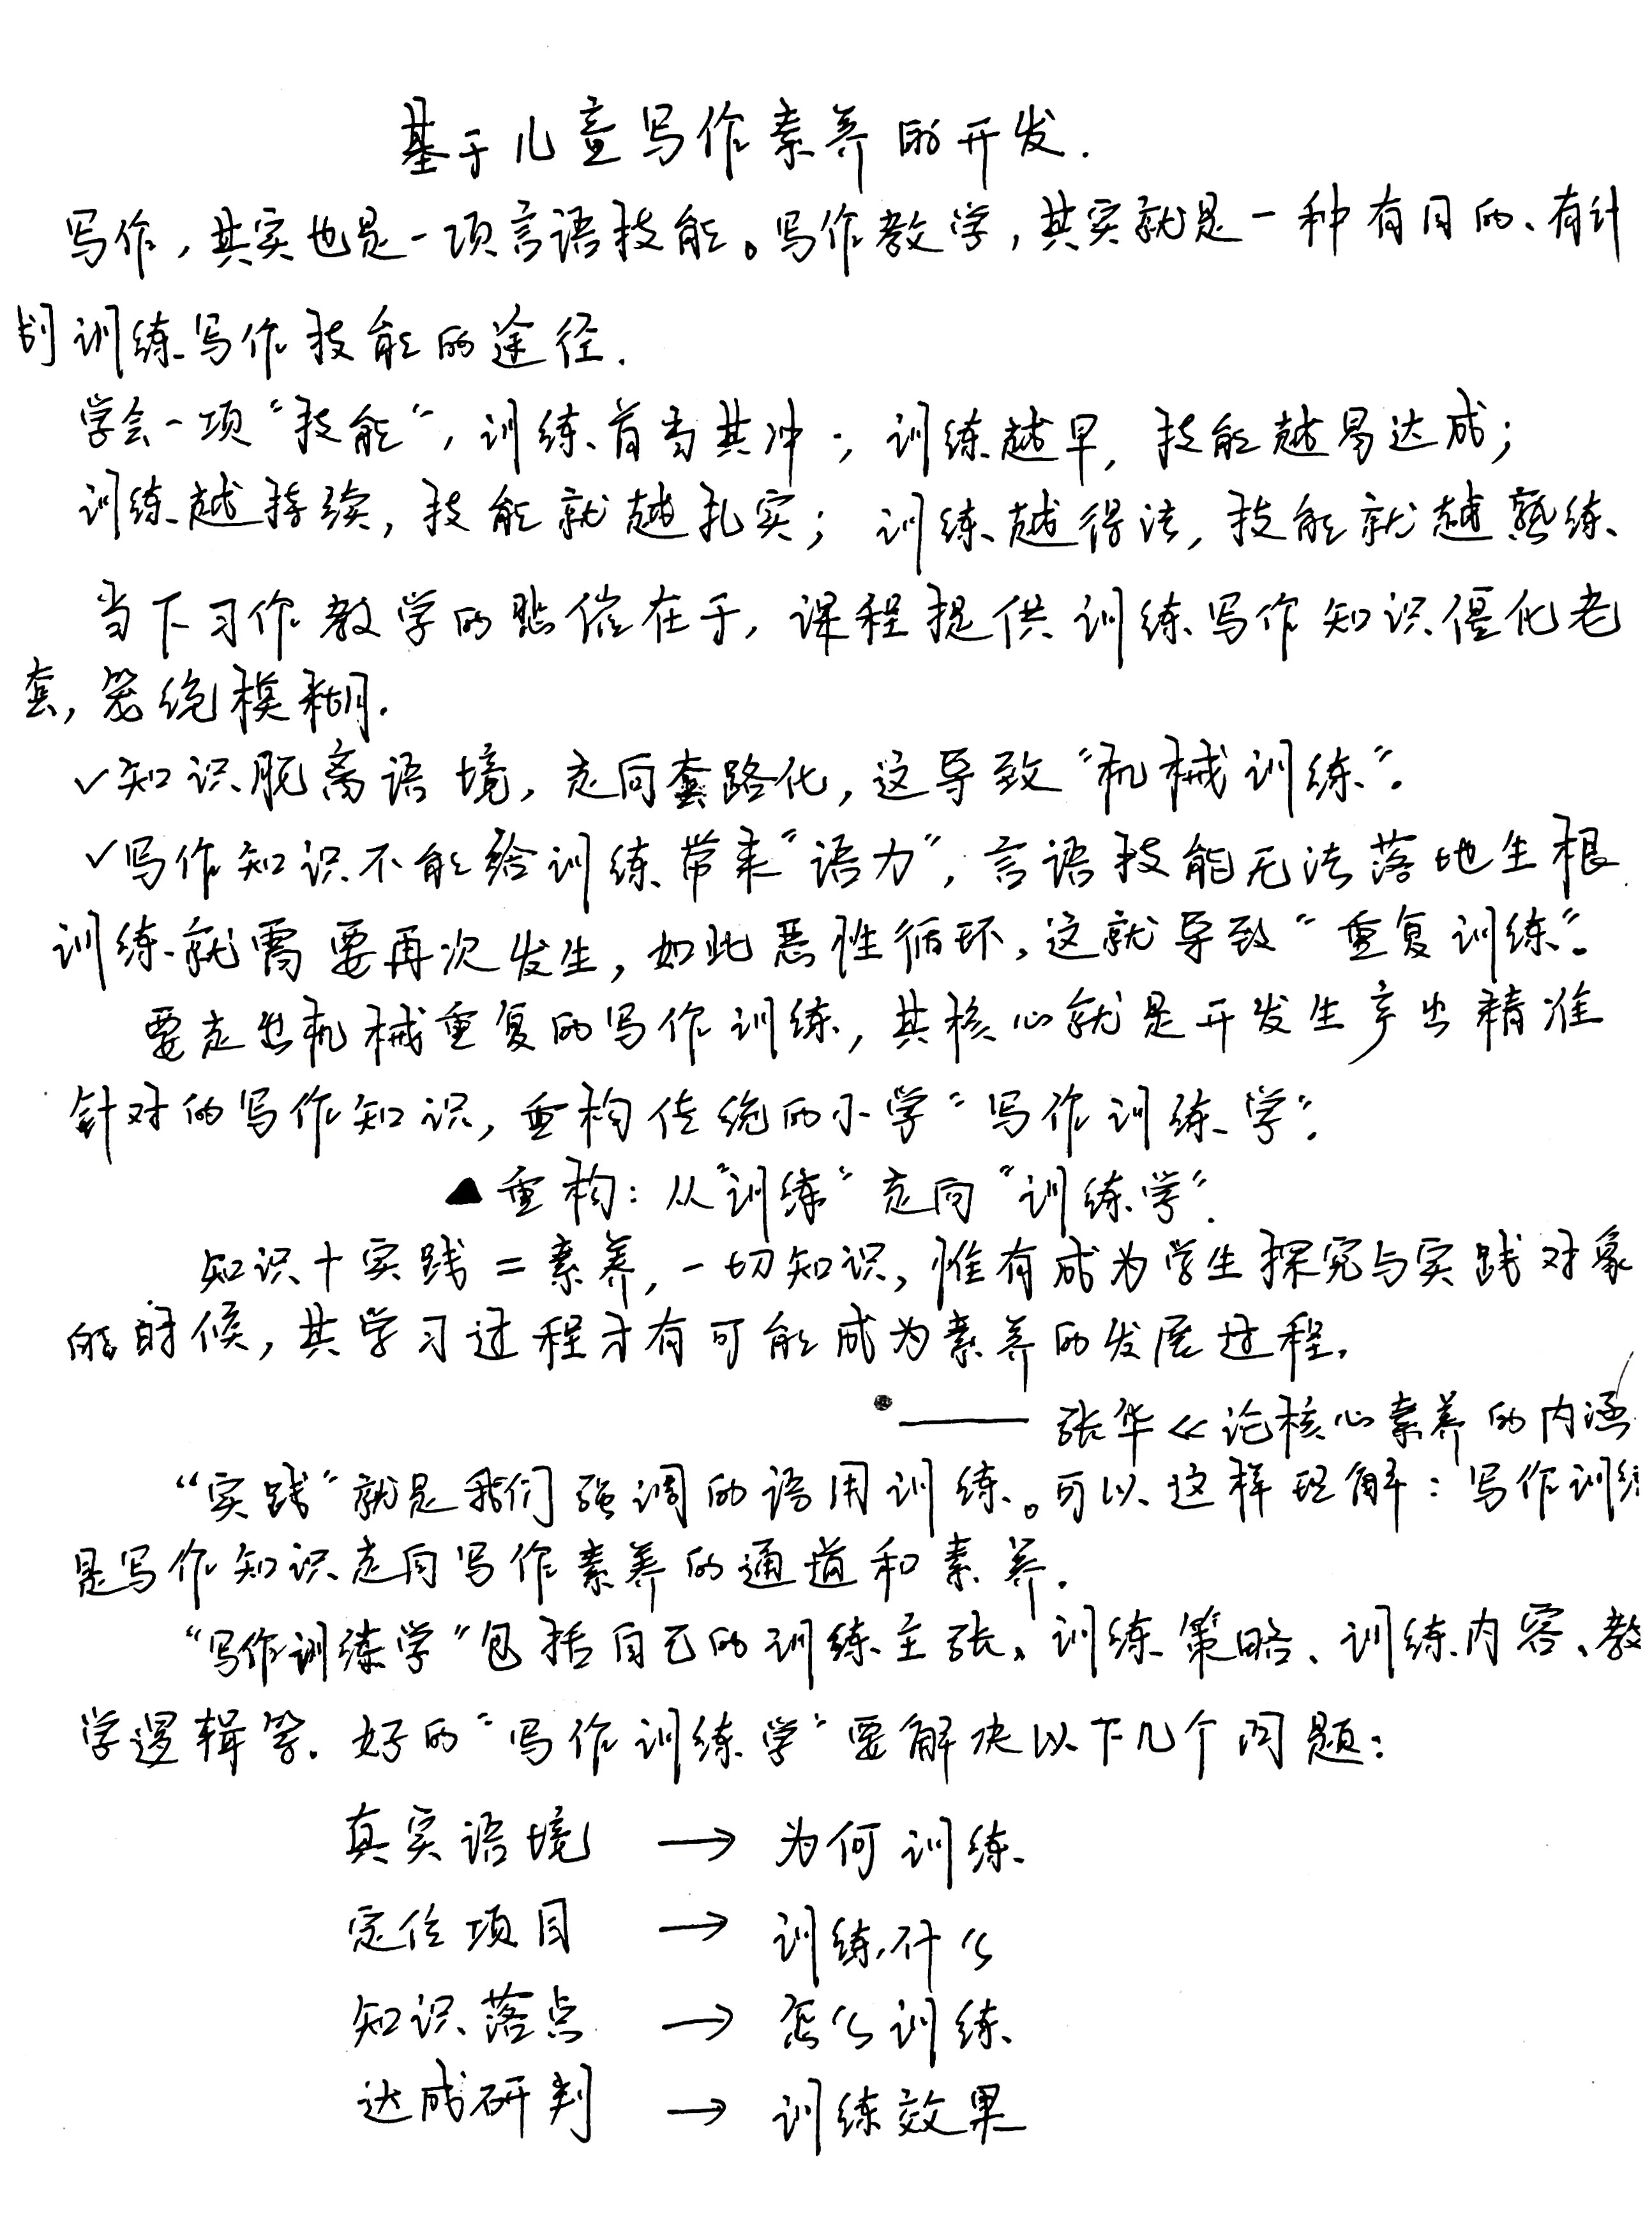 基于儿童写作素养的开发.
写作,其实也是一项言语技能。写作教学,其实就是一种有目的、有计
划训练写作技能的途径.
学会一项“技能”,训练首当其冲;训练越早,技能越易达成;
训练越持续,技能就越扎实;训练越得法,技能就越熟练、
当下习作教学的悲催在于,课程提供训练写作知识僵化老
套,笼统模糊.
✓知识脱离语境,走向套路化,这导致“机械训练”。
✓写作知识不能给训练带来“语力”,言语技能无法落地生根
训练就需要再次发生,如此恶性循环,这就导致“重复训练”。
要走出机械重复的写作训练,其核心就是开发生产出精准
针对的写作知识,重构传统的小学“写作训练学”.
▲重构:从“训练”走向“训练学”.
知识+实践=素养,一切知识,惟有成为学生探究与实践对象
的时候,其学习过程才有可能成为素养的发展过程,
——张华《论核心素养的内涵
“实践”就是我们强调的语用训练。可以这样理解:写作训练
是写作知识走向写作素养的通道和素养.
“写作训练学”包括自己的训练主张、训练策略、训练内容、教
学逻辑等.好的“写作训练学”要解决以下几个问题:
真实语境 → 为何训练
定位项目 → 训练什么
知识落点 → 怎么训练
达成研判 → 训练效果